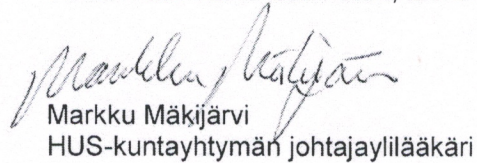 Markku Mäkijärvi
Markku Mäkijärvi
HUS-kuntayhtymän johtajaylilääkäri